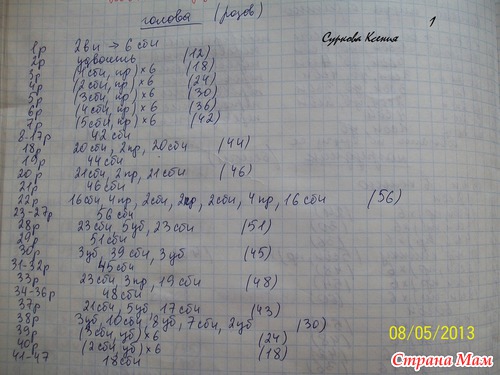 голова (розов)
1
Суркова Ксения
1р 2вп → 6 сбн
2р удвоить (12)
3р (1сбн, пр)×6 (18)
4р (2сбн, пр)×6 (24)
5р (3сбн, пр)×6 (30)
6р (4сбн, пр)×6 (36)
7р (5сбн, пр)×6 (42)
8-17р 42сбн
18р 20сбн, 2пр, 20сбн (44)
19р 44сбн
20р 21сбн, 2пр, 21сбн (46)
21р 46сбн
22р 16сбн, 4пр, 2сбн, 2пр, 2сбн, 4пр, 16сбн (56)
23-27р 56сбн
28р 23сбн, 5уб, 23сбн (51)
29р 51сбн
30р 3уб, 39сбн, 3уб (45)
31-32р 45сбн
33р 23сбн, 3пр, 19сбн (48)
34-36р 48сбн
37р 21сбн, 5уб, 17сбн (43)
38р 3уб, 10сбн, 8уб, 7сбн, 2уб (30)
39р (3сбн, уб)×6 (24)
40р (2сбн, уб)×6 (18)
41-47 18сбн
08/05/2013
Страна Мам